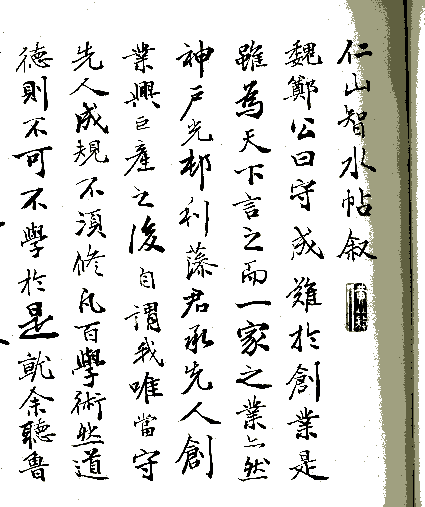 仁山智水帖叙
魏鄭公曰守成難於創業是
雖為天下言之而一家之業亦然
神戸光邨利藻君承先人創
業興巨産之後自謂我唯當守
先人成規不須修凡百學術然道
德則不可不學於是就余聽魯